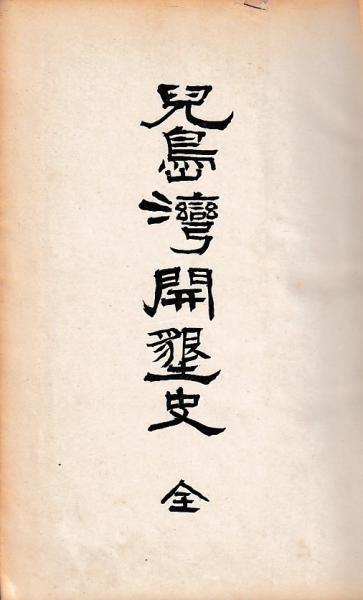 兒島灣開墾史 全